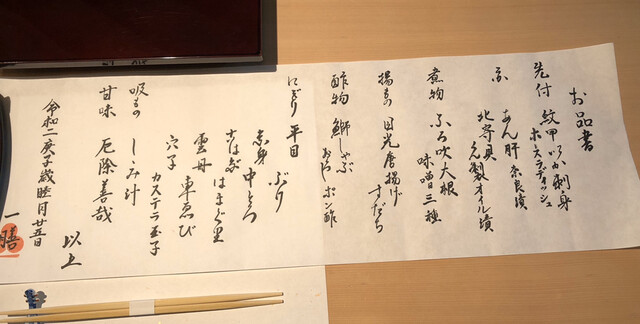 お品書
先付 紋甲いか刺身
ホースラディッシュ
あん肝 奈良漬
北寄貝
燻製オイル漬
煮物 ふろ吹大根
味噌三種
揚もの 目光唐揚げ
すだち
酢物 鰤しゃぶ
おろしポン酢
にぎり 平目 ぶり
赤身 中とろ
こはだ はまぐり
雲丹 車ゑび
穴子 カステラ玉子
吸もの しじみ汁
甘味 厄除善哉
以上
令和二庚子歳睦月廿五日
一膳